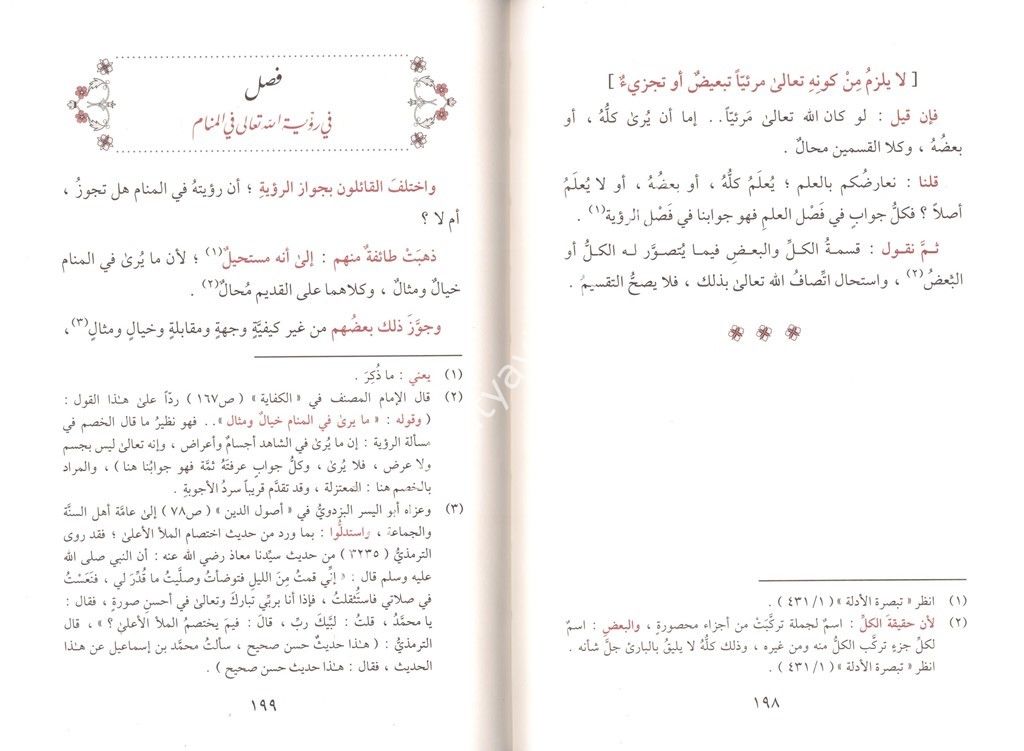 [ لا يلزمُ مِنْ كونِهِ تعالىٰ مرئيّاً تبعيضٌ أو تجزيءٌ ]
فإن قيل : لو كان الله تعالىٰ مَرئيّاً.. إما أن يُرىٰ كلُّهُ ، أو
بعضُهُ ، وكلا القسمين محالٌ .
قلنا : نعارضُكم بالعلم ؛ يُعلَمُ كلُّهُ ، أو بعضُهُ ، أو لا يُعلَمُ
أصلاً ؟ فكلُّ جوابٍ في فَصْل العلمِ فهو جوابنا في فَصْل الرؤية(١) .
ثـمَّ نقـول : قسمـةُ الكـلِّ والبعـضِ فيمـا يُتصـوَّر لـه الكـلُّ أو
البْعضُ(٢) ، واستحال اتِّصافُ الله تعالىٰ بذلك ، فلا يصحُّ التقسيمُ .
(١) انظر « تبصرة الأدلة » ( ٤٣١/١ ) .
(٢) لأن حقيقةَ الكلِّ : اسمٌ لجملة تركَّبَتْ من أجزاء محصورةٍ ، والبعضِ : اسمٌ
لكلِّ جزءٍ تركَّب الكلُّ منه ومن غيره ، وذلك كلُّهُ لا يليقُ بالبارئ جلَّ شأنه .
انظر « تبصرة الأدلة » ( ٤٣١/١ ) .
١٩٨
فصل
في رؤية الله تعالى في المنام
واختلفَ القائلون بجواز الرؤيةِ ؛ أن رؤيتهُ في المنام هل تجوزُ ،
أم لا ؟
ذهبَتْ طائفةٌ منهم : إلىٰ أنه مستحيلٌ(١) ؛ لأن ما يُرىٰ في المنام
خيالٌ ومثالٌ ، وكلاهما على القديم مُحالٌ(٢) .
وجوَّزَ ذلك بعضُهم من غير كيفيَّةٍ وجهةٍ ومقابلةٍ وخيالٍ ومثالٍ(٣) ،
(١) يعني : ما ذُكِرَ .
(٢) قال الإمام المصنف في « الكفاية » ( ص١٦٧ ) ردّاً علىٰ هـٰذا القول :
( وقوله : « ما يرىٰ في المنام خيالٌ ومثال ».. فهو نظيرُ ما قال الخصم في
مسألة الرؤية : إن ما يُرىٰ في الشاهد أجسامٌ وأعراض ، وإنه تعالىٰ ليس بجسم
ولا عرض ، فلا يُرىٰ ، وكلُّ جوابٍ عرفتَهُ ثمَّة فهو جوابُنا هنا ) ، والمراد
بالخصم هنا : المعتزلة ، وقد تقدَّم قريباً سردُ الأجوبةِ .
(٣) وعزاه أبو اليسر البزدويُّ في « أصول الدين » ( ص٧٨ ) إلىٰ عامَّة أهل السنَّة
والجماعة ، واستدلُّوا : بما ورد من حديث اختصام الملأ الأعلىٰ ؛ فقد روى
الترمذيُّ ( ٣٢٣٥ ) من حديث سيِّدنا معاذ رضي الله عنه : أن النبي صلى الله
عليه وسلم قال : « إنِّي قمتُ مِنَ الليلِ فتوضأتُ وصلَّيتُ ما قُدِّرَ لي ، فنَعَسْتُ
في صلاتي فاستُثقلتُ ، فإذا أنا بربِّي تباركَ وتعالىٰ في أحسنِ صورةٍ ، فقال :
يا محمَّدُ ، قلتُ : لبَّيكَ ربِّ ، قالَ : فيمَ يختصمُ الملأ الأعلىٰ ؟ » ، قال
الترمذيُّ : ( هـٰذا حديثٌ حسن صحيح ، سألتُ محمَّد بن إسماعيل عن هـٰذا
الحديث ، فقال : هـٰذا حديث حسن صحيح ) .
١٩٩